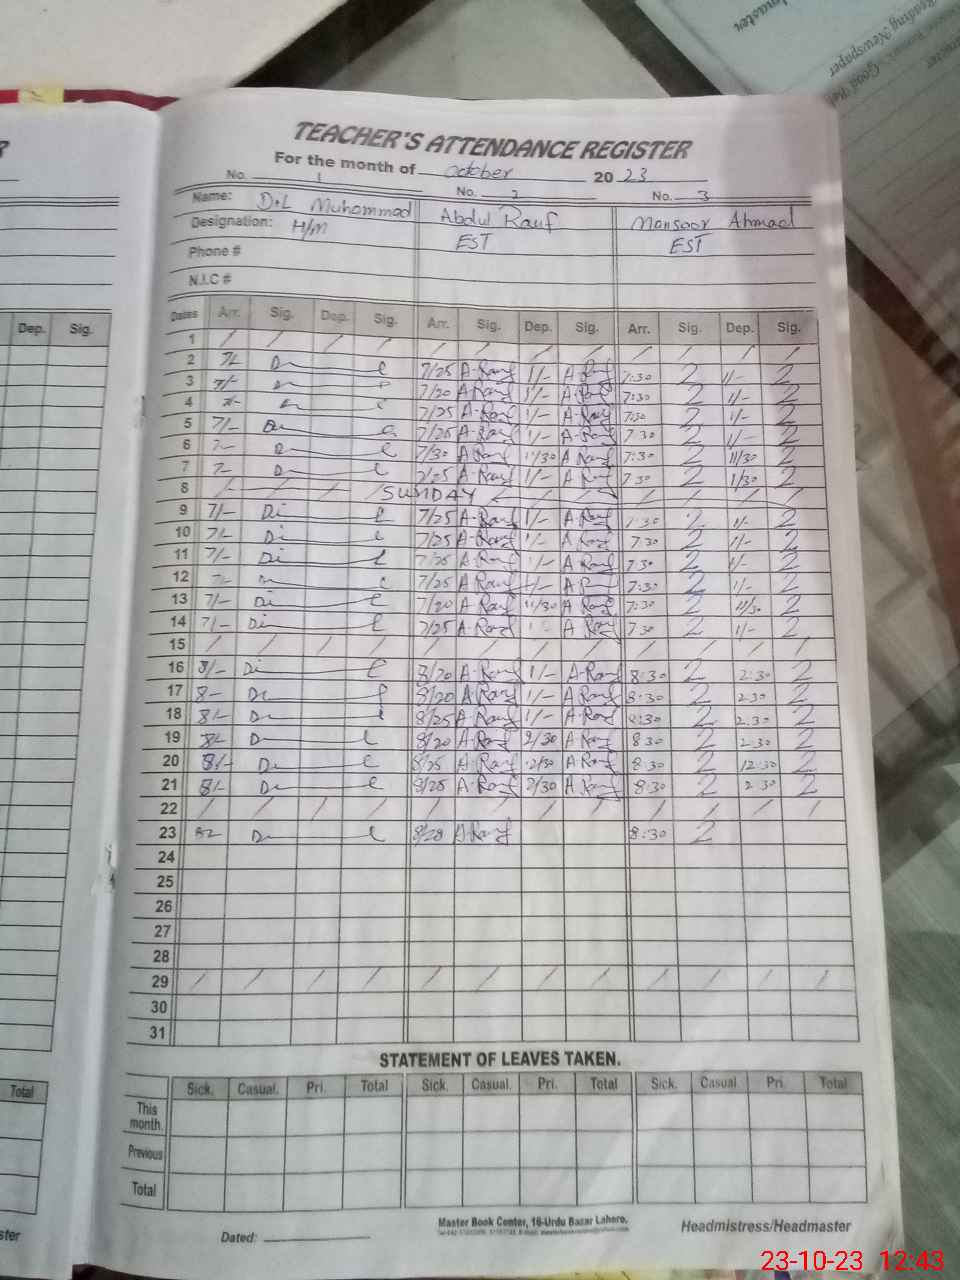 Newspaper
TEACHER'S ATTENDANCE REGISTER
For the month of october 2023
No. 1 No. 2 No. 3
Name: Dil Muhammad Abdul Rauf Mansoor Ahmad
Designation: H/M EST EST
Phone #
N.I.C #
Dep. Sig. Dates Arr. Sig. Dep. Sig. Arr. Sig. Dep. Sig. Arr. Sig. Dep. Sig.
1 / / / / / / / / / / / /
2 7/- 7/25 A-Rauf 1/- A-Rauf 7:30 2 1/- 2
3 7/- 7/20 A-Rauf 1/- A-Rauf 7:30 2 1/- 2
4 7/- 7/25 A-Rauf 1/- A-Rauf 7:30 2 1/- 2
5 7/- 7/25 A-Rauf 1/- A-Rauf 7:30 2 1/- 2
6 7/- 7/30 A-Rauf 11/30 A-Rauf 7:30 2 11/30 2
7 7/- 7/25 A-Rauf 1/- A-Rauf 7:30 2 1/30 2
8 SUNDAY
9 7/- 7/25 A-Rauf 1/- A-Rauf 7:30 2 1/- 2
10 7/- 7/25 A-Rauf 1/- A-Rauf 7:30 2 1/- 2
11 7/- 7/25 A-Rauf 1/- A-Rauf 7:30 2 1/- 2
12 7/- 7/25 A-Rauf 1/- A-Rauf 7:30 2 1/- 2
13 7/- 7/20 A-Rauf 11/30 A-Rauf 7:30 2 11/30 2
14 7/- 7/25 A-Rauf 1/- A-Rauf 7:30 2 1/- 2
15 / / / / / / / / / / / /
16 8/- 8/20 A-Rauf 1/- A-Rauf 8:30 2 2:30 2
17 8/- 8/20 A-Rauf 1/- A-Rauf 8:30 2 2:30 2
18 8/- 8/25 A-Rauf 1/- A-Rauf 8:30 2 2:30 2
19 8/- 8/20 A-Rauf 2/30 A-Rauf 8:30 2 2:30 2
20 8/- 8/25 A-Rauf 12/30 A-Rauf 8:30 2 12:30 2
21 8/- 8/25 A-Rauf 2/30 A-Rauf 8:30 2 2:30 2
22 / / / / / / / / / / / /
23 8/- 8/28 A-Rauf 8:30 2
24
25
26
27
28
29 / / / / / / / / / / / /
30
31
STATEMENT OF LEAVES TAKEN.
Total Sick. Casual. Pri. Total Sick. Casual. Pri. Total Sick. Casual Pri. Total
This month.
Previous
Total
Master Book Center, 16-Urdu Bazar Lahore.
Dated: Headmistress/Headmaster
23-10-23 12:43